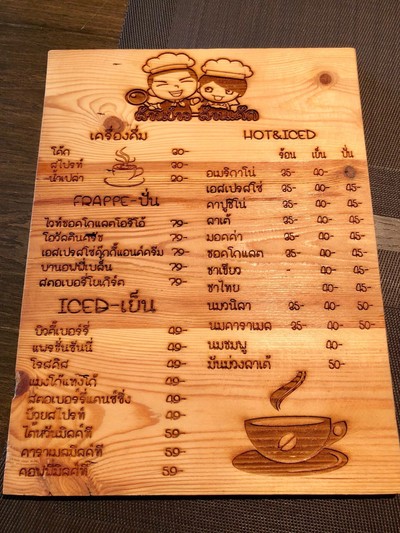 เครื่องดื่ม
โค้ก 20-
สไปรท์ 20-
น้ำเปล่า 20-
FRAPPE-ปั่น
ไวท์ชอคโกแลตโอริโอ้ 79-
โอวัลตินครัช 79-
เอสเปรสโซ่คุ๊กกี้แอนด์ครีม 79-
บานอฟปี้เบลิ้น 79-
สตอเบอร์รี่โยเกิร์ต 79-
ICED-เย็น
บิวตี้เบอร์รี่ 49-
แพรชั่นซันนี่ 49-
โรสคิส 49-
แมงโก้แทงโก้ 49-
สตอเบอร์รี่แดนซ์ซิ่ง 49-
บ๊วยสไปรท์ 49-
ไต้หวันมิลค์ที 59-
คาราเมลมิลค์ที 59-
คอฟฟี่มิลค์ที 59-
HOT&ICED
ร้อน เย็น ปั่น
อเมริกาโน่ 35- 40- 45-
เอสเปรสโซ่ 35- 40- 45-
คาปูชิโน่ 35- 40- 45-
ลาเต้ 35- 40- 45-
มอคค่า 35- 40- 45-
ชอคโกแลต 35- 40- 45-
ชาเขียว 40- 45-
ชาไทย 40- 45-
นมวนิลา 35- 40- 50
นมคาราเมล 35- 40- 50-
นมชมพู 40-
มันม่วงลาเต้ 50-